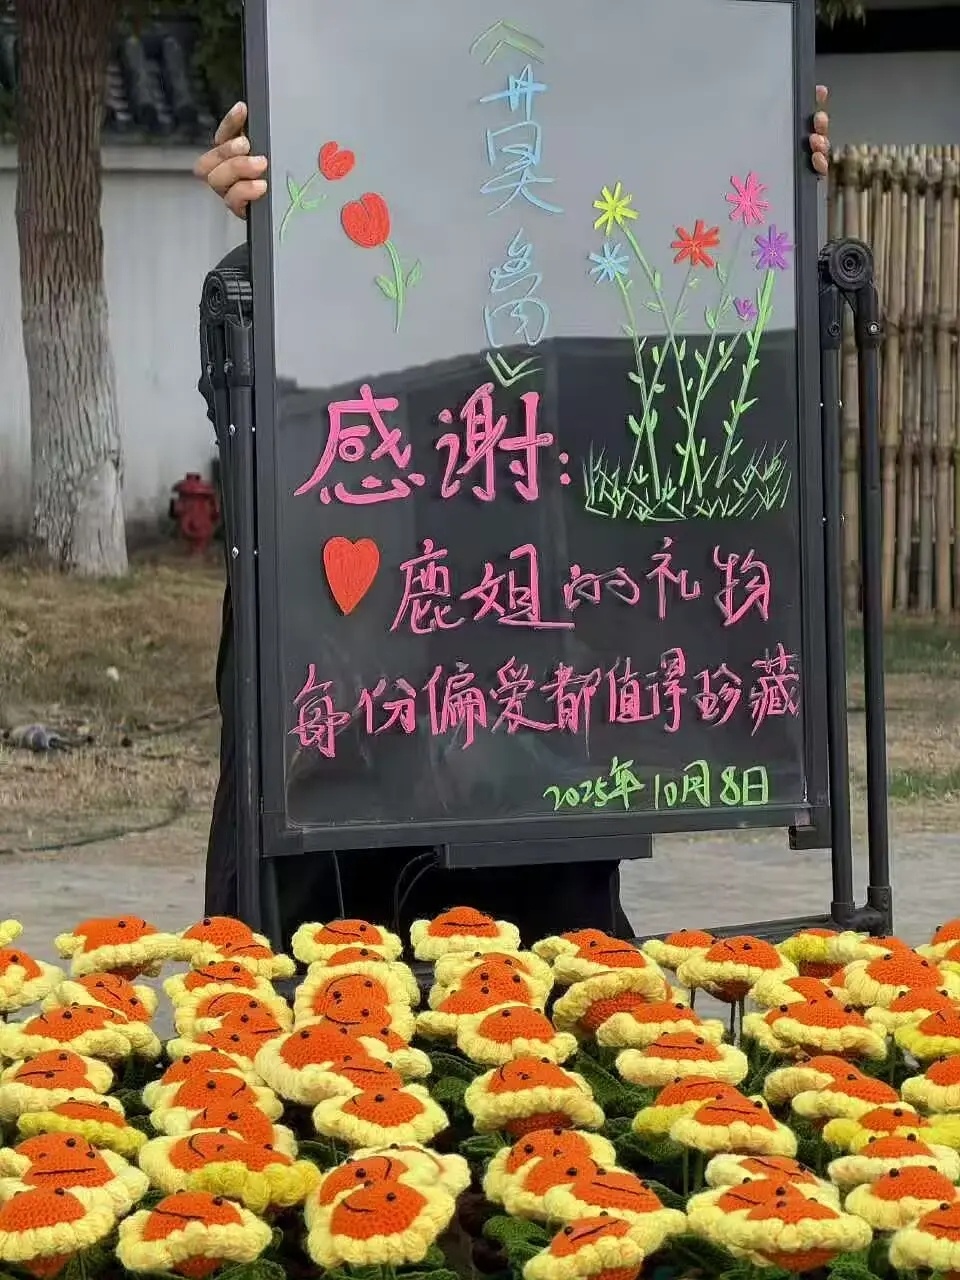 《莫离》
感谢:
鹿姐的礼物
每份偏爱都值得珍藏
2025年10月8日